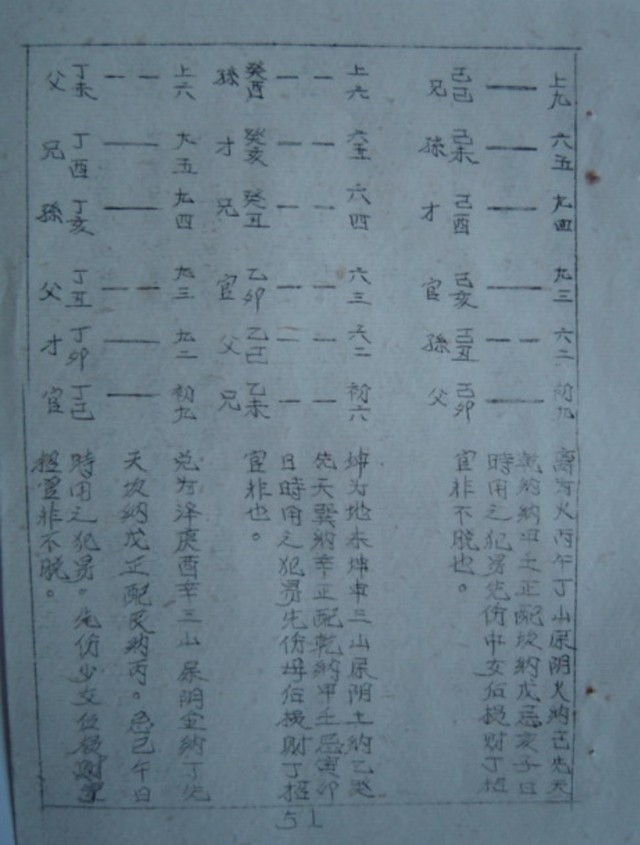 上九 己巳 兄
六五 己未 孫
九四 己酉 才
九三 己亥 官
六二 己丑 孫
初九 己卯 父
离为火丙午丁山属阴火纳己先天
乾纳纳甲壬正配坎纳戊忌亥子日
時用之犯男先伤中女后损财丁招
官非不脱也。
上六 癸酉 孫
六五 癸亥 才
六四 癸丑 兄
六三 乙卯 官
六二 乙巳 父
初六 乙未 兄
坤为地未坤申三山属阴土纳乙癸
先天巽纳辛正配乾纳甲壬忌寅卯
日時用之犯男先伤母后损财丁招
官非也。
上六 丁未 父
九五 丁酉 兄
九四 丁亥 孫
九三 丁丑 父
九二 丁卯 才
初九 丁巳 官
兑为泽庚酉辛三山属阴金纳丁先
天坎纳戊正配艮纳丙。忌巳午日
時用之犯男。先伤少女后损财
招官非不脱。
51